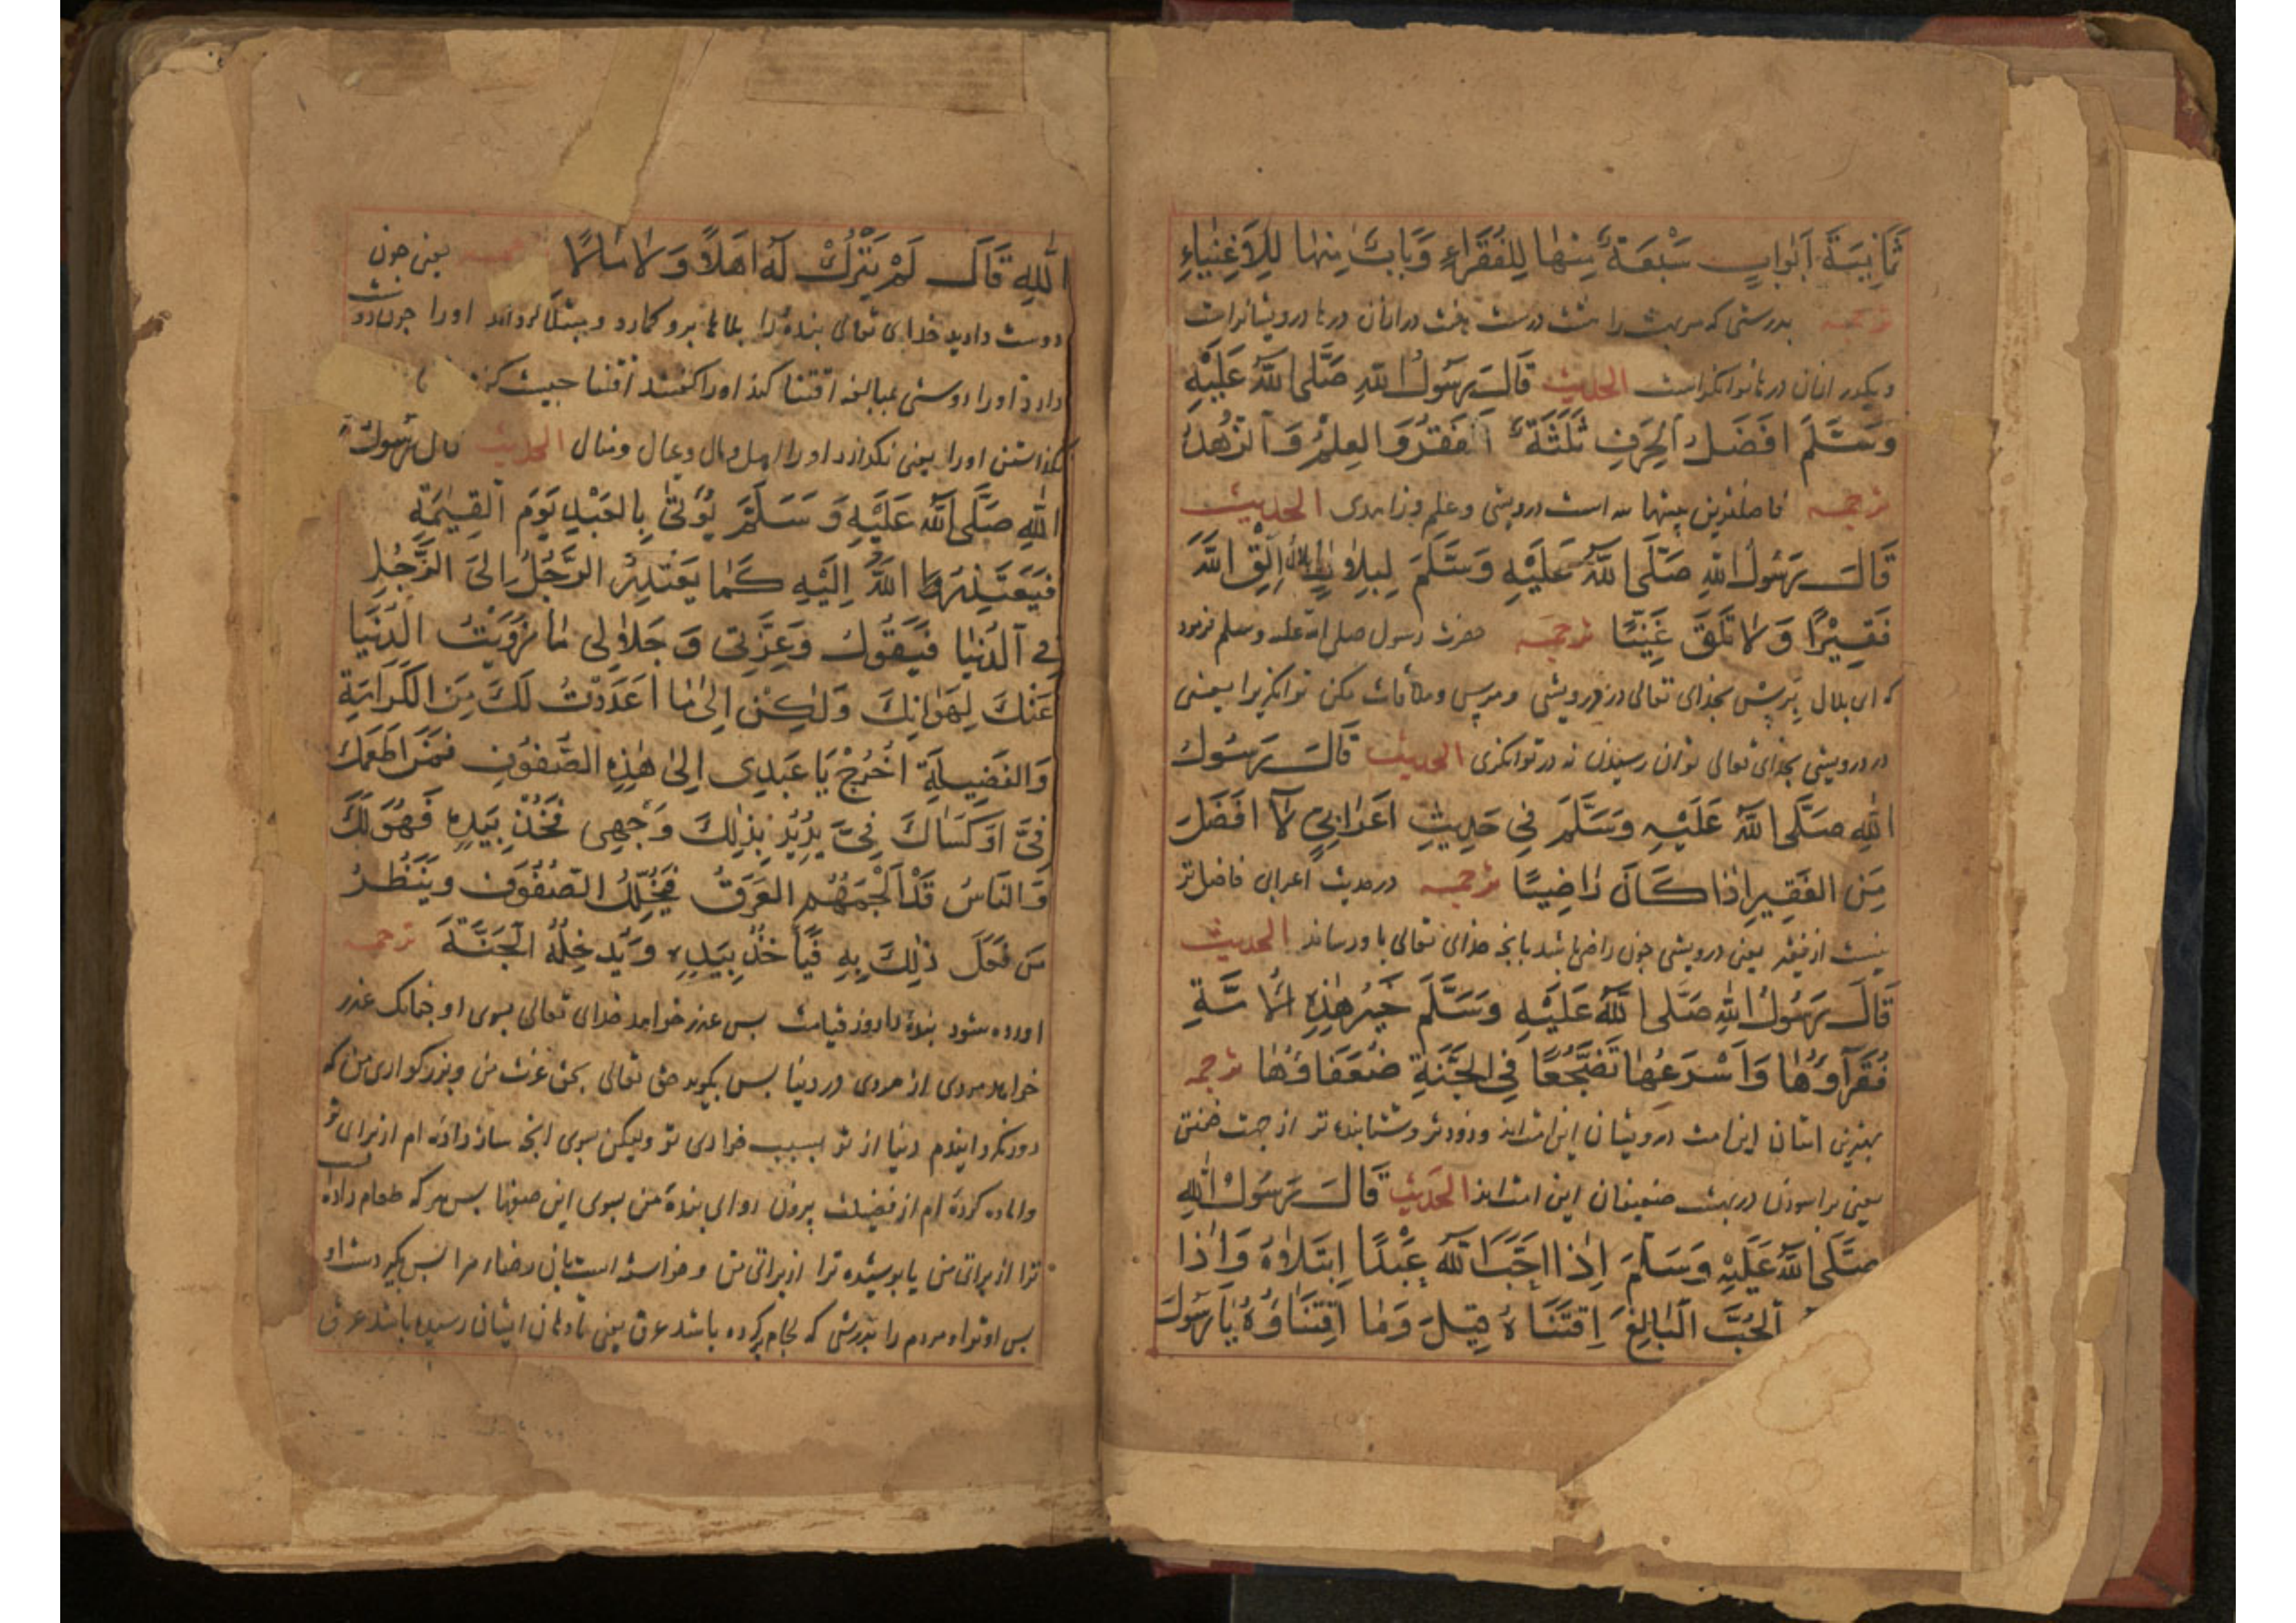 ثَمَانِيَةَ اَبْوَابٍ سَبْعَةٌ مِنْهَا لِلْفُقَرَاءِ وَبَابٌ مِنْهَا لِلْاَغْنِيَاءِ
ترجمه بدرستی که مر بهشت را هشت درست هفت در ازان درها درویشانراست
ویکدر ازان درها توانکرانراست الحدیث قَالَ رَسُولُ اللهِ صَلَّى اللهُ عَلَيْهِ
وَسَلَّمَ اَفْضَلُ الْحِرَفِ ثَلَثَةٌ اَلْفَقْرُ وَالْعِلْمُ وَالزُّهْدُ
ترجمه فاضلترین پیشها سه است درویشی و علم و زاهدی الحدیث
قَالَ رَسُولُ اللهِ صَلَّى اللهُ عَلَيْهِ وَسَلَّمَ لِبِلَالٍ اِلْقِ اللهَ
فَقِيْرًا وَلَا تَلْقَ غَنِيًّا ترجمه حضرت رسول صلی الله علیه وسلم فرمود
که ای بلال بخدای تعالی در درویشی و ملاقات مکن توانکر را یعنی
در درویشی بخدای تعالی توان رسیدن نه در توانکری الحدیث قَالَ رَسُولُ
اللهِ صَلَّى اللهُ عَلَيْهِ وَسَلَّمَ فِي حَدِيثِ اَعْرَابِيٍّ لَا اَفْضَلَ
مِنَ الْفَقِيرِ اِذَا كَانَ رَاضِيًا ترجمه در حدیث اعرابی فاضل تر
نیست از فقیر یعنی درویشی چون راضی باشد بانچه خدای تعالی باو رساند الحدیث
قَالَ رَسُولُ اللهِ صَلَّى اللهُ عَلَيْهِ وَسَلَّمَ خَيْرُ هٰذِهِ الْاُمَّةِ
فُقَرَآؤُهَا وَاَسْرَعُهَا تَضَجُّعًا فِي الْجَنَّةِ ضُعَفَاؤُهَا ترجمه
بهترین این امت درویشان این امت اند وزودتر وشتابنده تر از جهت خفتن
یعنی براسودن در بهشت ضعیفان این امت اند الحدیث قَالَ رَسُولُ اللهِ
صَلَّى اللهُ عَلَيْهِ وَسَلَّمَ اِذَا اَحَبَّ اللهُ عَبْدًا اِبْتَلَاهُ وَاِذَا
الْحُبَّ الْبَالِغَ اِقْتَنَاهُ قِيلَ وَمَا اقْتِنَاؤُهُ يَا رَسُولَ
اللهِ قَالَ لَمْ يَتْرُكْ لَهُ اَهْلًا وَلَا مَالًا ترجمه یعنی چون
دوست دارد خدای تعالی بنده را بلاها برو کمارد و مبتلا کرداند او را چون دوست
دارد او را دوستی بمبالغه اقتنا کند او را کفتند اقتنا چیست
کذاشتن او را یعنی نکذارد او را اهل و مال و عیال و منال الحدیث قال رَسُولُ
اللهِ صَلَّى اللهُ عَلَيْهِ وَسَلَّمَ يُؤْتَى بِالْعَبْدِ يَوْمَ الْقِيٰمَةِ
فَيَعْتَذِرُ اللهُ اِلَيْهِ كَمَا يَعْتَذِرُ الرَّجُلُ اِلَى الرَّجُلِ
فِي الدُّنْيَا فَيَقُولُ وَعِزَّتِي وَجَلَالِي مَا زَوَيْتُ الدُّنْيَا
عَنْكَ لِهَوَانِكَ وَلٰكِنْ اِلٰى مَا اَعْدَدْتُ لَكَ مِنَ الْكَرَامَةِ
وَالْفَضِيلَةِ اُخْرُجْ يَا عَبْدِي اِلٰى هٰذِهِ الصُّفُوفِ فَمَنْ اَطْعَمَكَ
فِيَّ اَوْ كَسَاكَ فِيَّ يُرِيْدُ بِذٰلِكَ وَجْهِي فَخُذْ بِيَدِهِ فَهُوَ لَكَ
وَالنَّاسُ قَدْ اَلْجَمَهُمُ الْعَرَقُ فَيُخَلِّلُ الصُّفُوفَ وَيَنْظُرُ
مَنْ فَعَلَ ذٰلِكَ بِهِ فَيَأْخُذُ بِيَدِهِ وَيُدْخِلُهُ الْجَنَّةَ ترجمه
اورده شود بنده را روز قیامت بس عذر خواهد خدای تعالی بسوی او چنانک عذر
خواهد مردی از مردی در دنیا بس بکوید حق تعالی بحق عزت من و بزرکواری من که
دور نکردانیدم دنیا از تو بسبب خواری تو ولیکن بسوی انچه ساز داده ام از برای تو
واماده کرده ام از فضیلت بیرون رو ای بنده من بسوی این صفها بس هر که طعام داده است
ترا از برای من یا پوشیده ترا از برای من و خواسته است بان رضاء مرا بس بکیر دست او
بس او تراو مردم را بدرستی که لجام کرده باشد عرق یعنی تا دهان ایشان رسیده باشد عرق